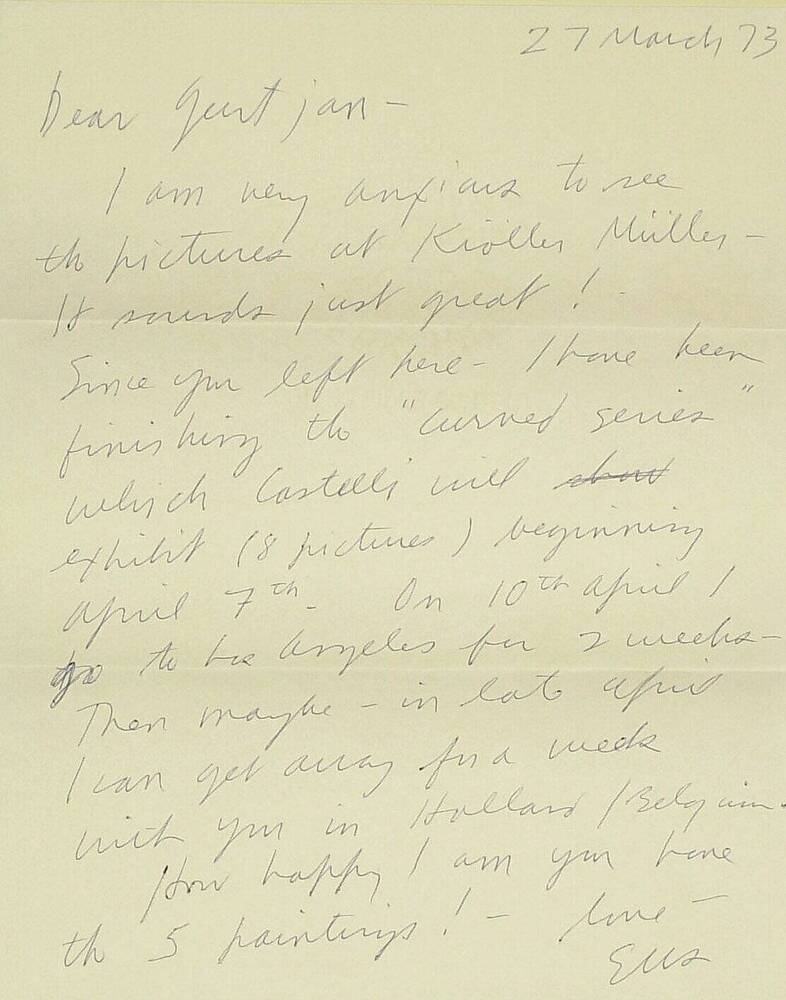 27 March 73
Dear Geert jan –
I am very anxious to see
the pictures at Kröller Müller –
It sounds just great ! –
Since you left here – I have been
finishing the "curved series"
which Castelli will show
exhibit (8 pictures) beginning
April 7th – On 10th April I
go to Los Angeles for 2 weeks –
Then maybe – in late April
I can get away for a week
with you in Holland / Belgium.
How happy I am you have
the 5 paintings ! – love –
Ells